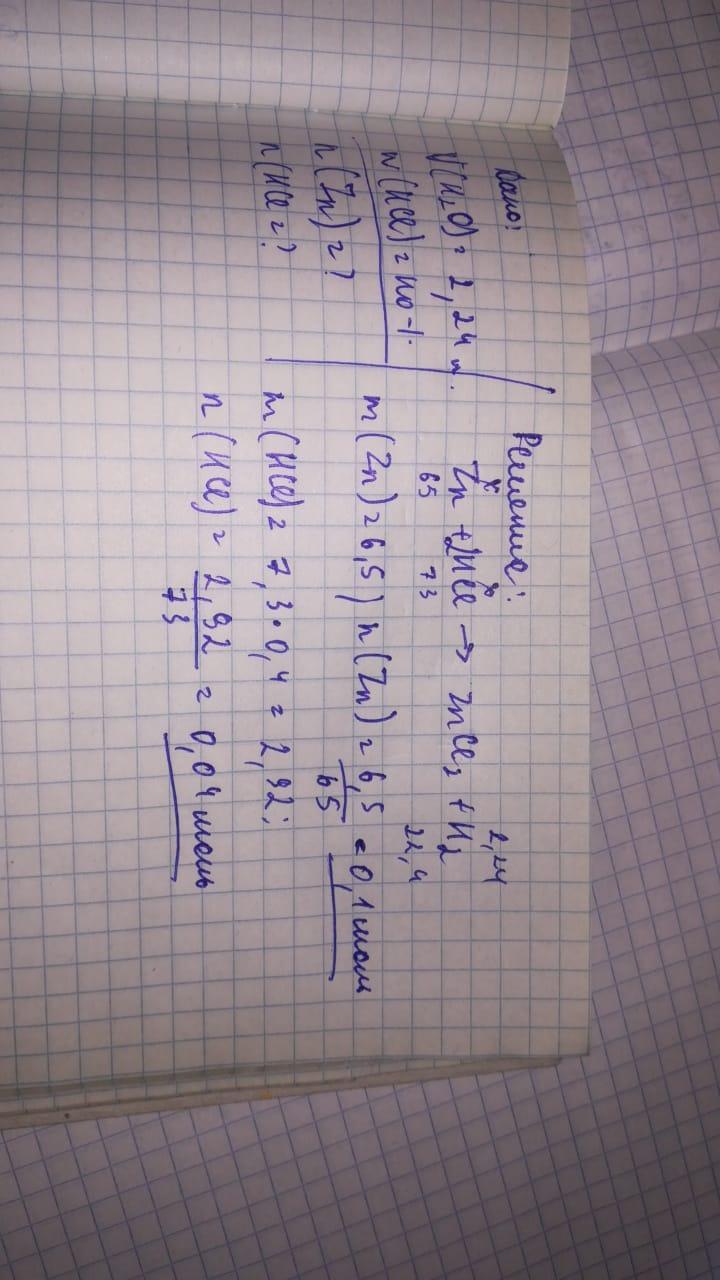 Дано:
V(H₂O) = 2,24 л.
w(HCl) = 40%
n(Zn) = ?
n(HCl = ?
Решение:
x x 2,24
Zn + 2HCl → ZnCl₂ + H₂
65 73 22,4
m(Zn) = 6,5) n(Zn) = 6,5/65 = 0,1 моль
m(HCl) = 7,3 · 0,4 = 2,92;
n(HCl) = 2,92/73 = 0,04 моль